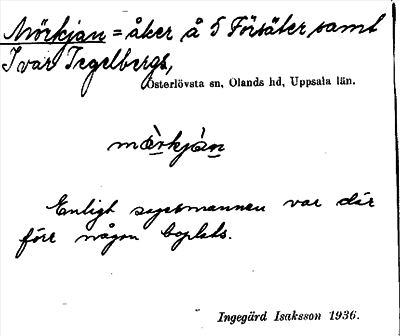 Mörkjan = åker å 5 Försäter samt
Ivar Tegelbergs,
Österlövsta sn, Olands hd, Uppsala län.
mærkján
Enligt sagesmannen var där
förr någon boplats.
Ingegärd Isaksson 1936.